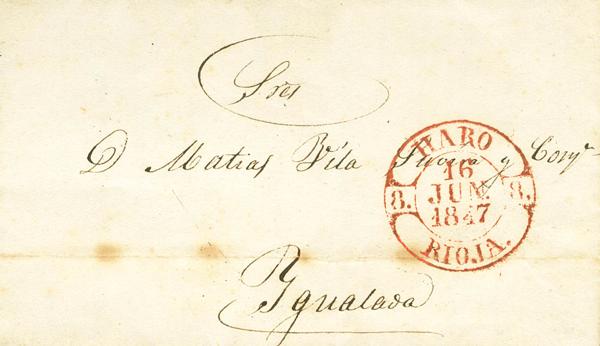 Sres
D Matias Vila y Comp.ª
HARO
16
JUN.
1847
8. 8.
RIOJA.
Igualada